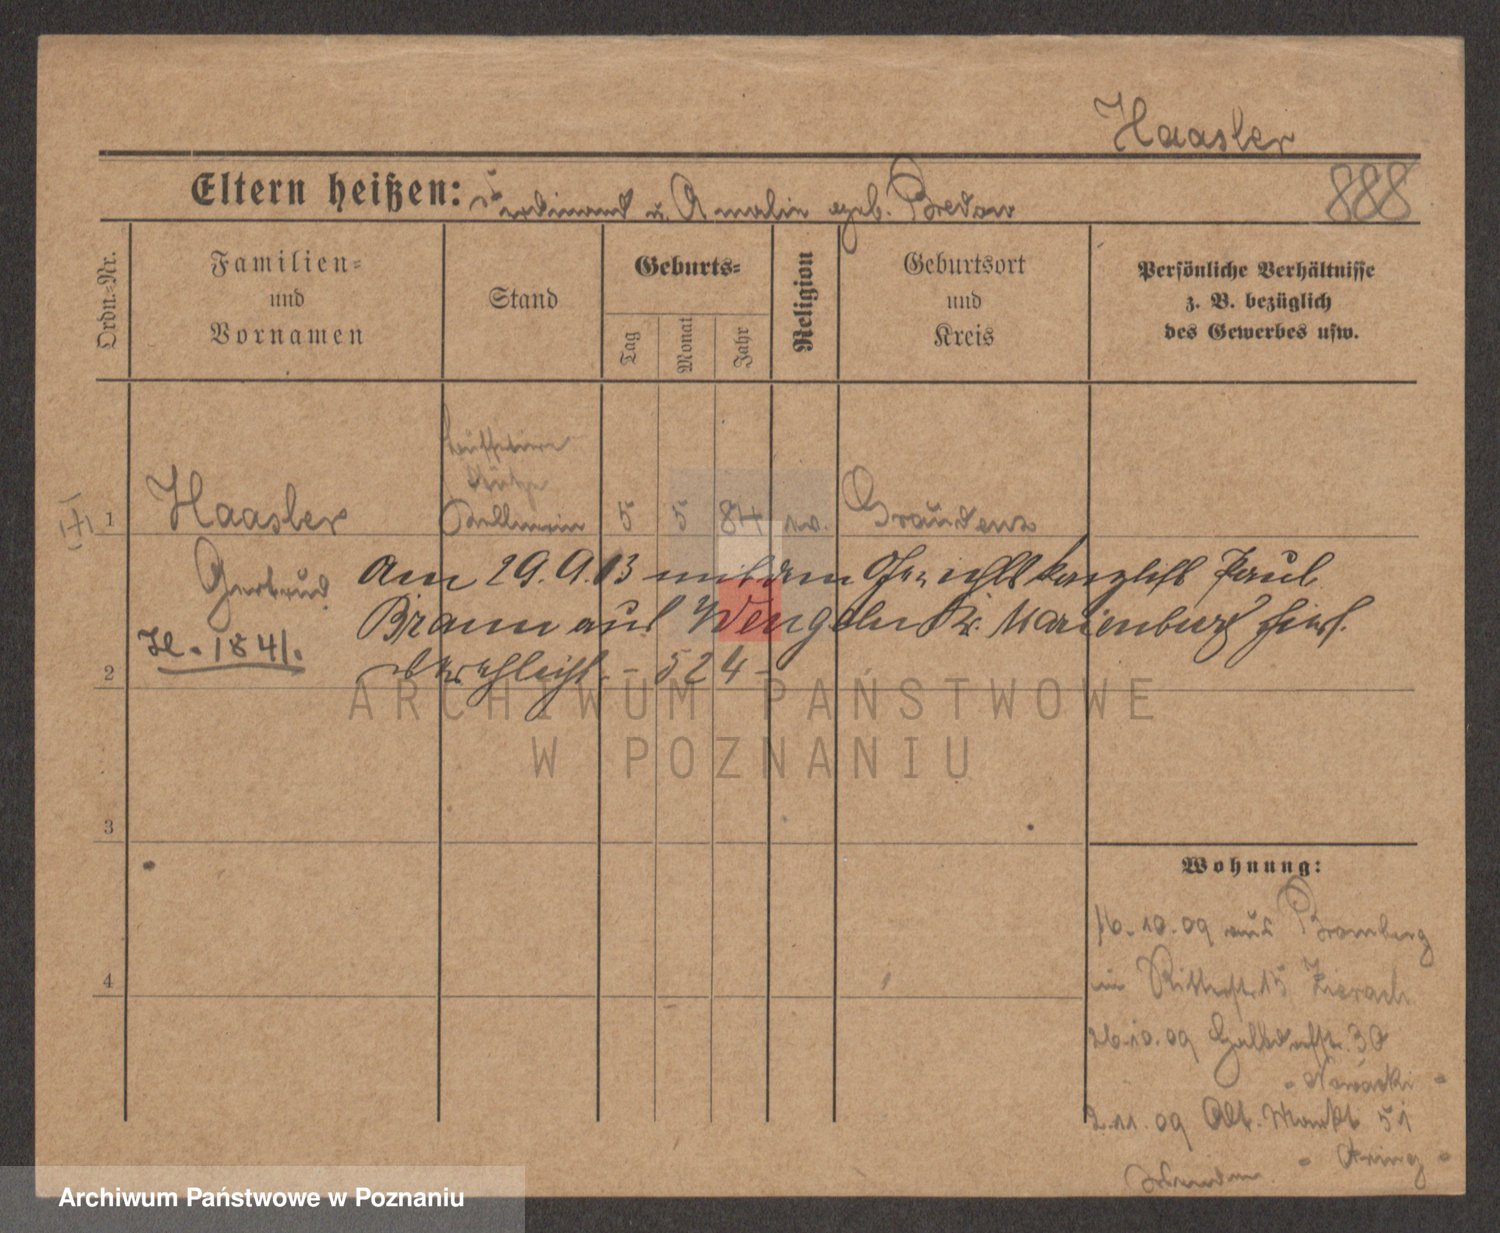 Haasler
Eltern heißen: Ferdinand u. Amalie geb. Bredow
888
Ordn.-Nr.
Familien-
und
Vornamen
Stand
Geburts-
Tag
Monat
Jahr
Religion
Geburtsort
und
Kreis
Persönliche Verhältnisse
z. B. bezüglich
des Gewerbes usw.
Stütze
1 Haasler Kellnerin 5 5 84 ev. Graudenz
Gertrud
Am 29.9.13 mit dem Gerichtskanzlist Paul
Braun aus Wengeln Kr. Marienburg hier
H. 1841.
2 verehelicht. - 524 -
ARCHIWUM PAŃSTWOWE
W POZNANIU
3
Wohnung:
16.10.09 aus Bromberg
in Ritterstr. 15 Zierach
4
26.10.09 Halbdorfstr. 30
- Nowacki -
2.11.09 Alt. Markt 51
- Kring -
Archiwum Państwowe w Poznaniu